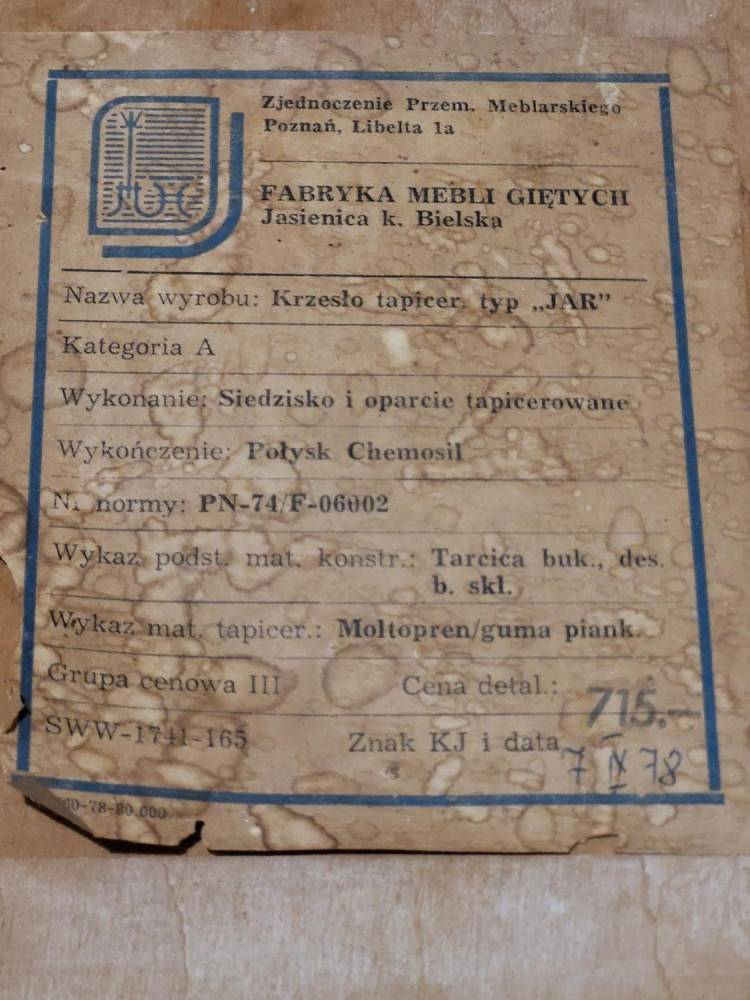 Zjednoczenie Przem. Meblarskiego
Poznań, Libelta 1a
FABRYKA MEBLI GIĘTYCH
Jasienica k. Bielska
Nazwa wyrobu: Krzesło tapicer. typ „JAR”
Kategoria A
Wykonanie: Siedzisko i oparcie tapicerowane
Wykończenie: Połysk Chemosil
Nr normy: PN-74/F-06002
Wykaz podst. mat. konstr.: Tarcica buk., des.
b. skl.
Wykaz mat. tapicer.: Moltopren/guma piank.
Grupa cenowa III Cena detal.: 715.-
SWW-1741-165 Znak KJ i data 7 IX 78
60-78-80.000